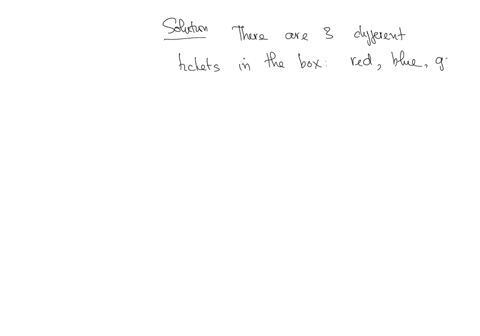 Solution There are 3 different
tickets in the box: red, blue, g